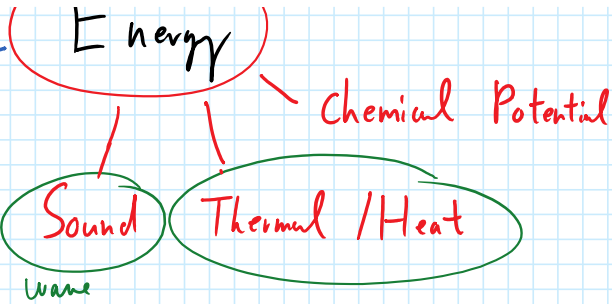 Energy
Chemical Potential
Sound
Thermal / Heat
wave